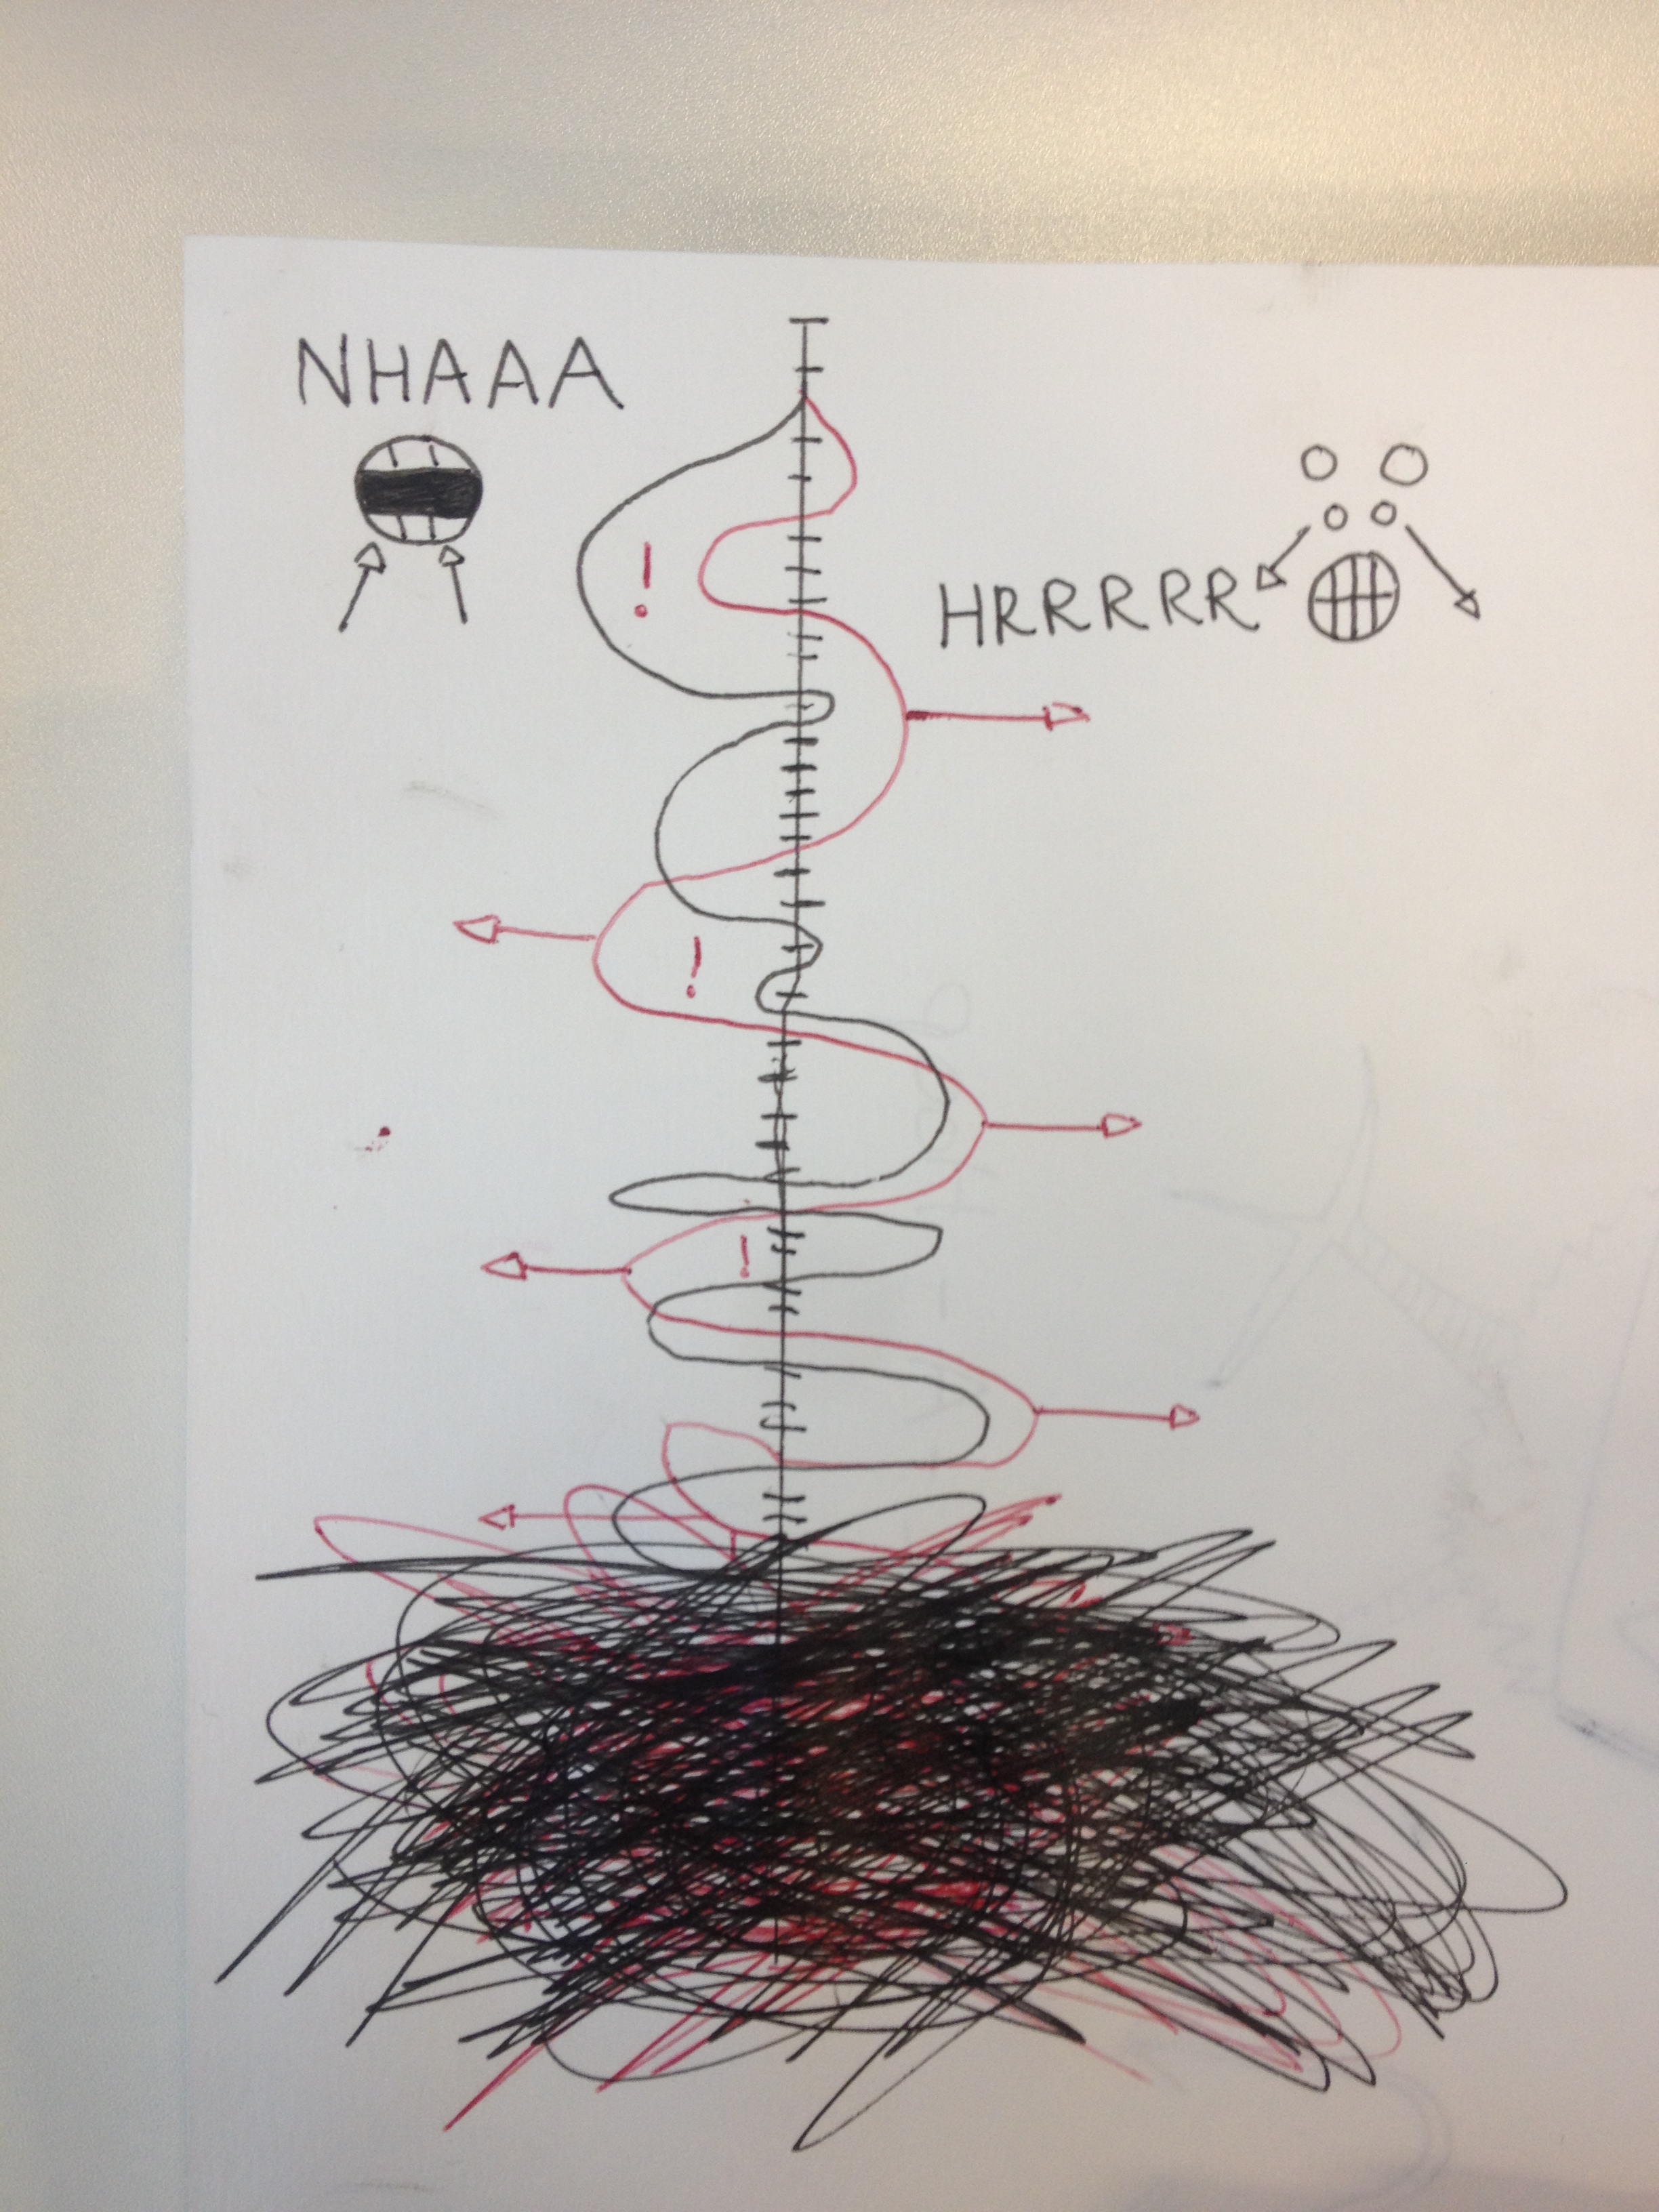 NHAAA
!
HRRRRR
!
!